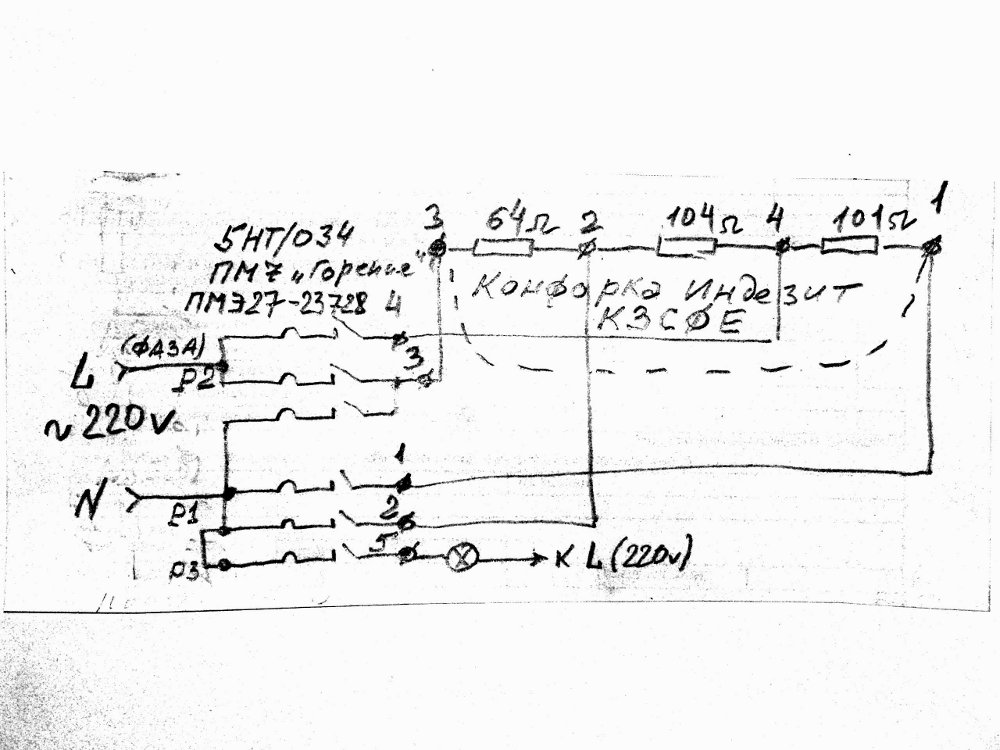 3 64Ω 2 104Ω 4 101Ω 1
5НТ/034
ПМ7 „Горение"
ПМЭ27-23728 4
Конфорка Индезит
КЗСФЕ
(ФАЗА) 3
L P2
~220V
1
N P1 2
5
P3 К L (220v)